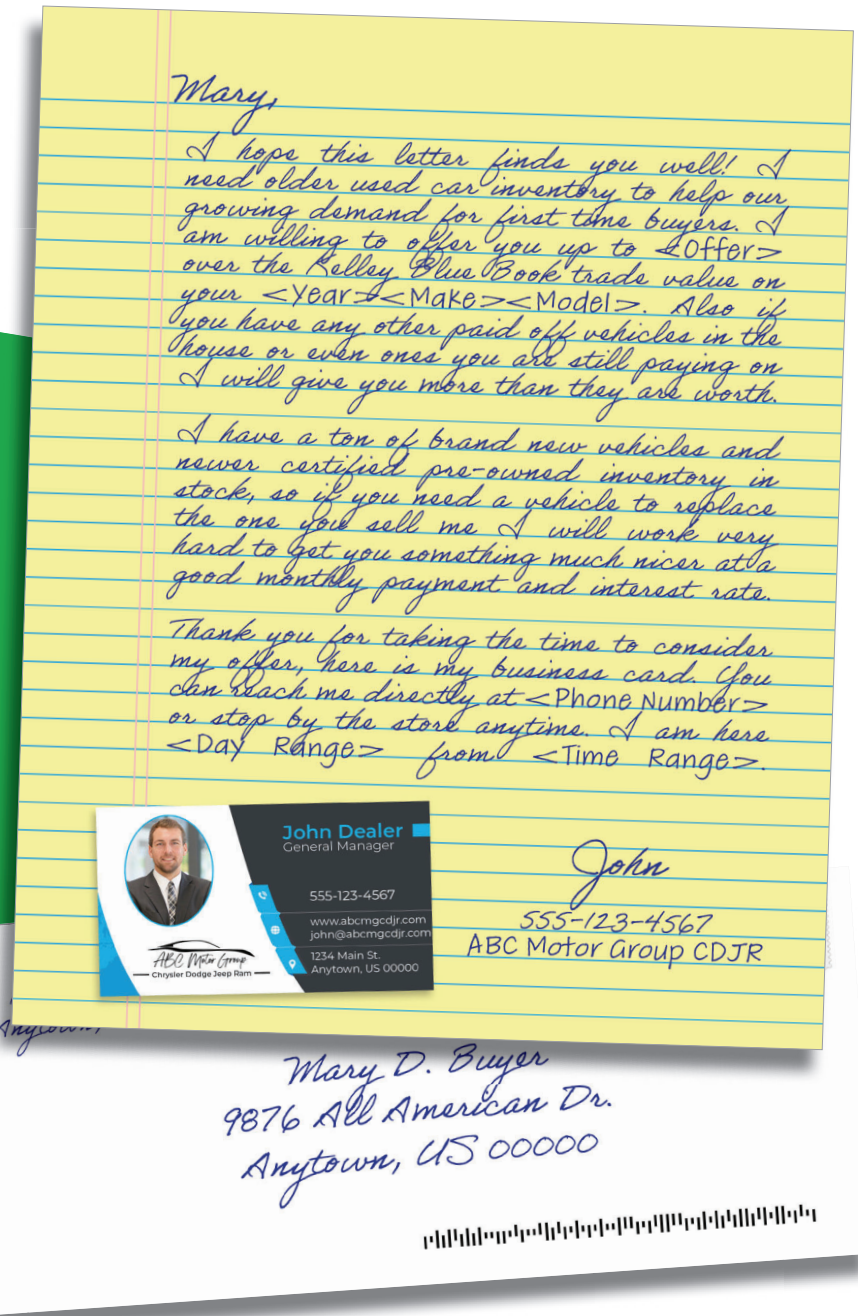 Mary,
I hope this letter finds you well! I
need older used car inventory to help our
growing demand for first time buyers. I
am willing to offer you up to <Offer>
over the Kelley Blue Book trade value on
your <Year><Make><Model>. Also if
you have any other paid off vehicles in the
house or even ones you are still paying on
I will give you more than they are worth.
I have a ton of brand new vehicles and
newer certified pre-owned inventory in
stock, so if you need a vehicle to replace
the one you sell me I will work very
hard to get you something much nicer at a
good monthly payment and interest rate.
Thank you for taking the time to consider
my offer, here is my business card. You
can reach me directly at <Phone Number>
or stop by the store anytime. I am here
<Day Range> from <Time Range>.
John Dealer
General Manager
555-123-4567
www.abcmgcdjr.com
john@abcmgcdjr.com
1234 Main St.
Anytown, US 00000
ABC Motor Group
Chrysler Dodge Jeep Ram
John
555-123-4567
ABC Motor Group CDJR
Anytown,
Mary D. Buyer
9876 All American Dr.
Anytown, US 00000